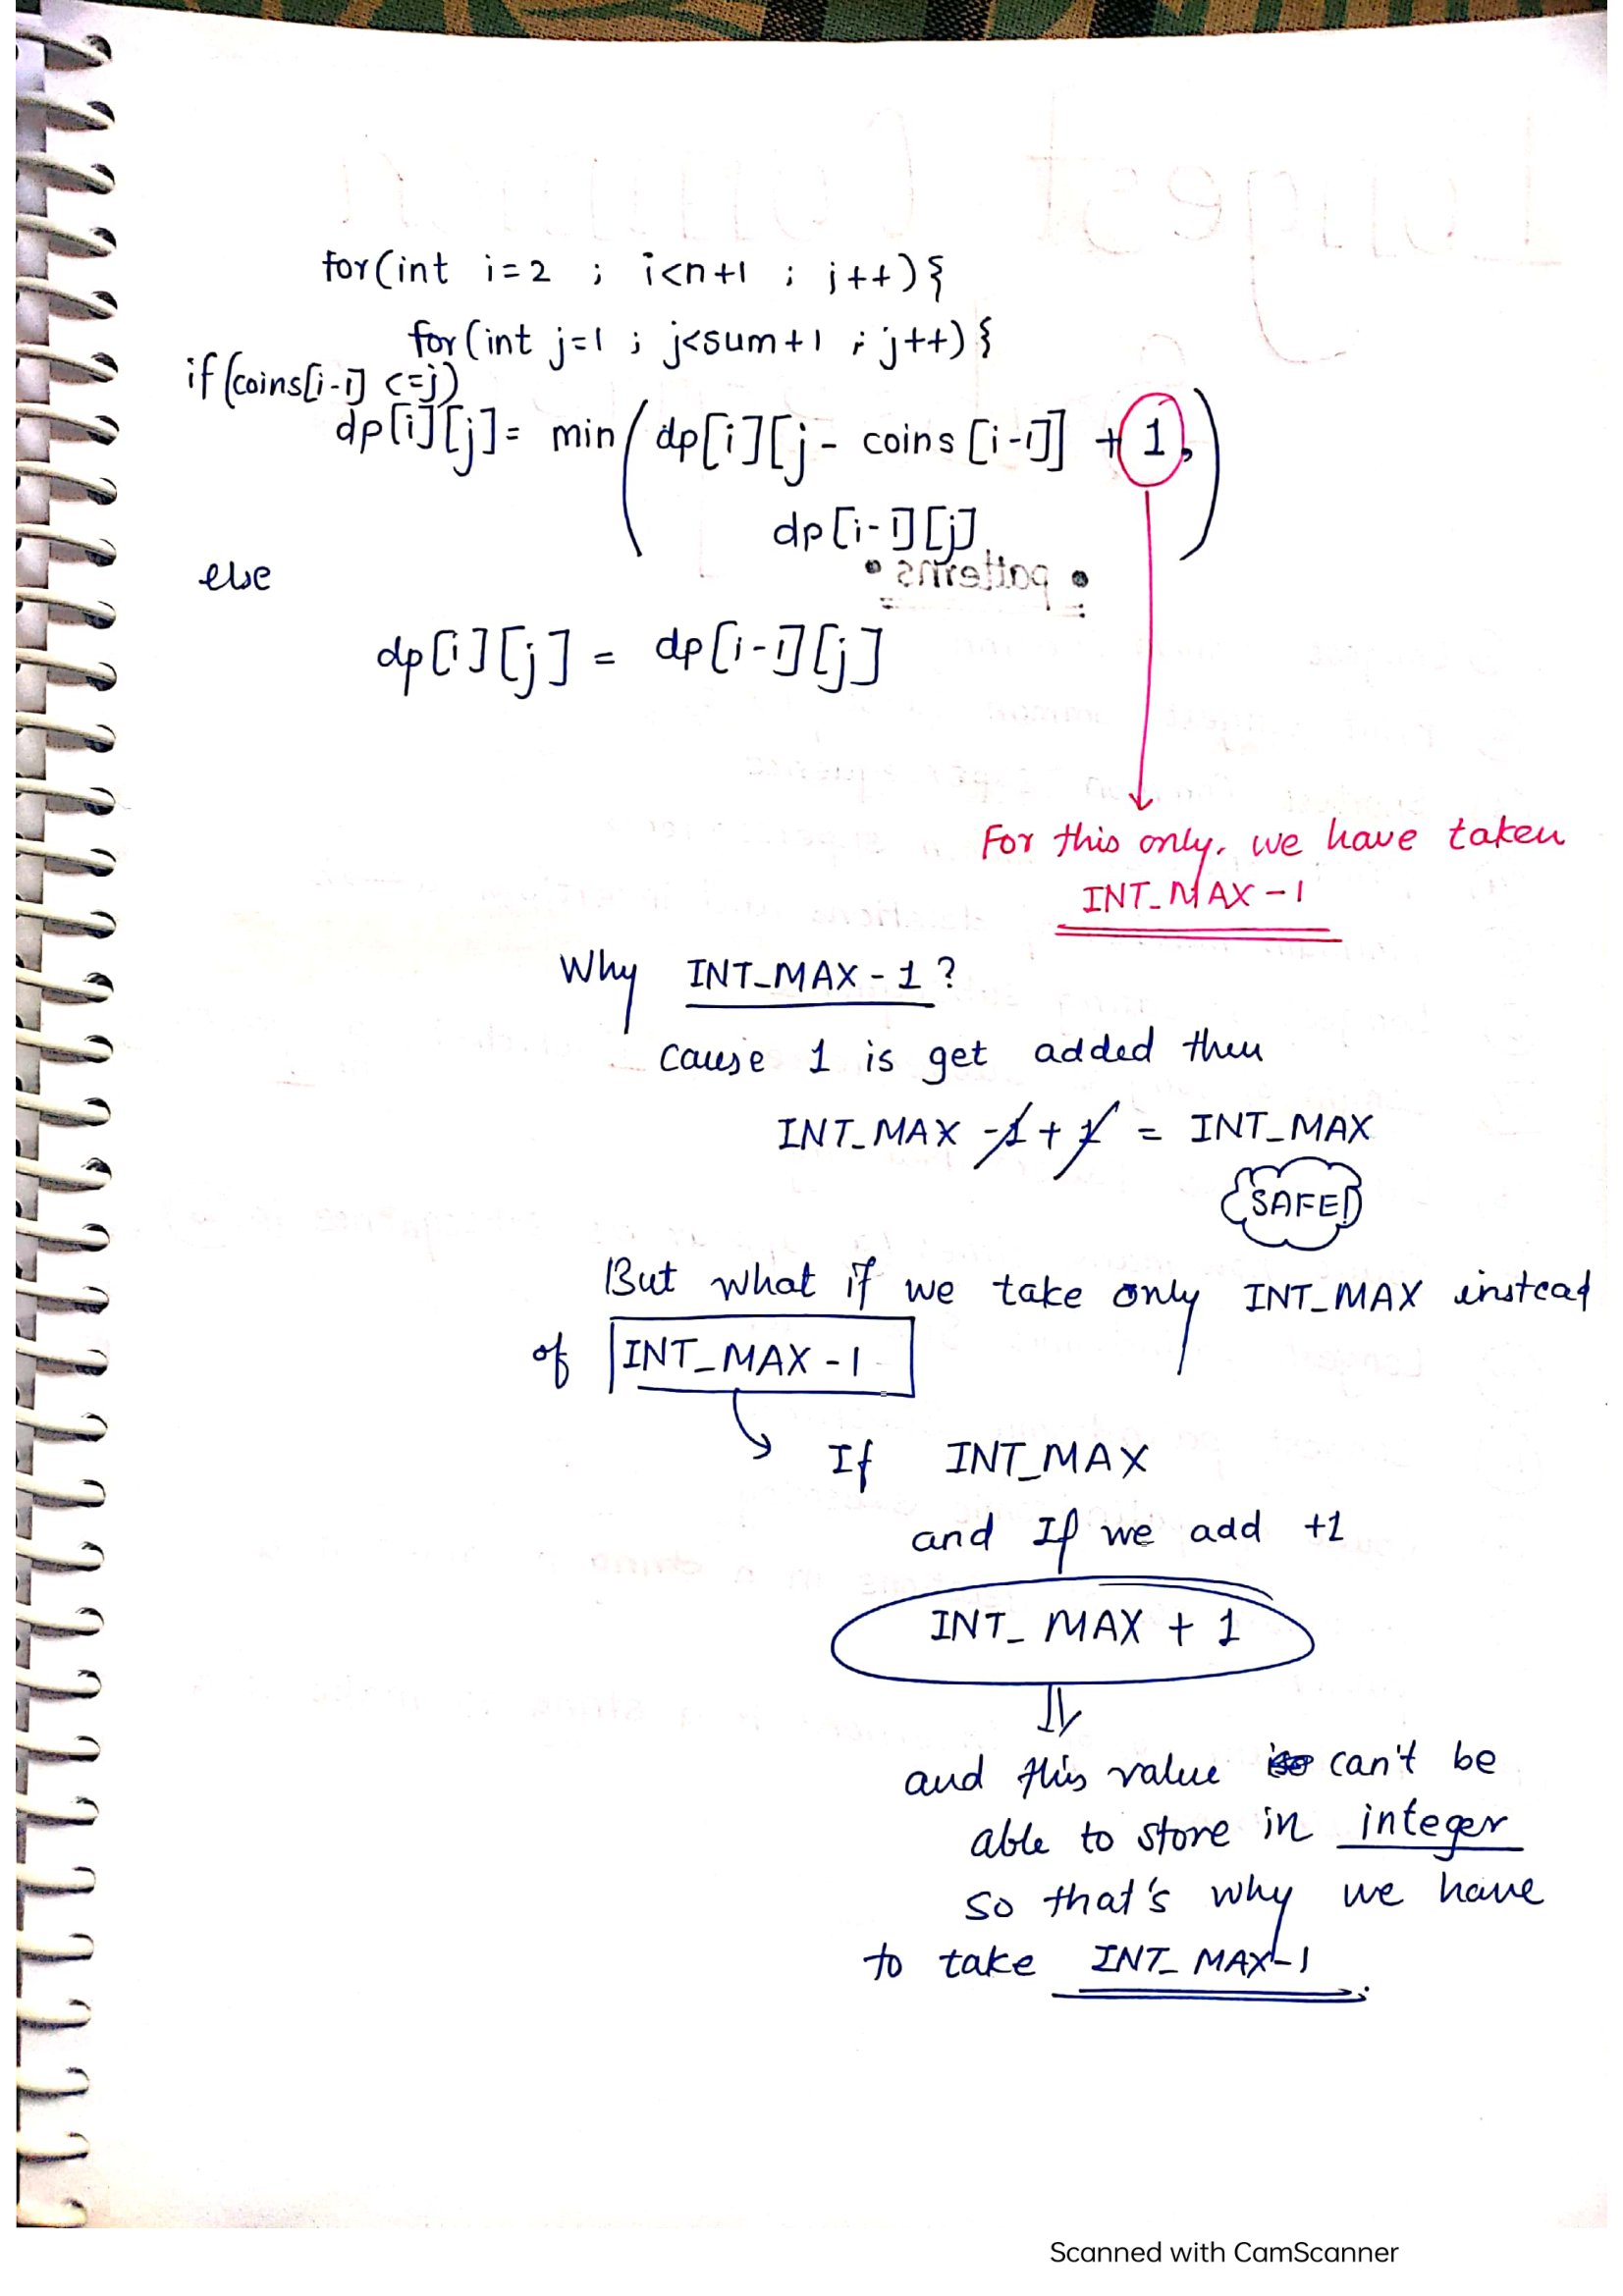 for(int i=2 ; i<n+1 ; i++){
for(int j=1 ; j<sum+1 ; j++){
if(coins[i-1] <=j)
dp[i][j]= min( dp[i][j- coins [i-1]] + 1,
dp[i-1][j] )
• patterns •
else
dp[i][j] = dp[i-1][j]
For this only, we have taken
INT_MAX -1
Why INT_MAX - 1 ?
cause 1 is get added then
INT_MAX -1 + 1 = INT_MAX
SAFE!
But what if we take only INT_MAX instead
of INT_MAX -1
If INT_MAX
and If we add +1
INT_ MAX + 1
and this value can't be
able to store in integer
so that's why we have
to take INT_ MAX-1
Scanned with CamScanner